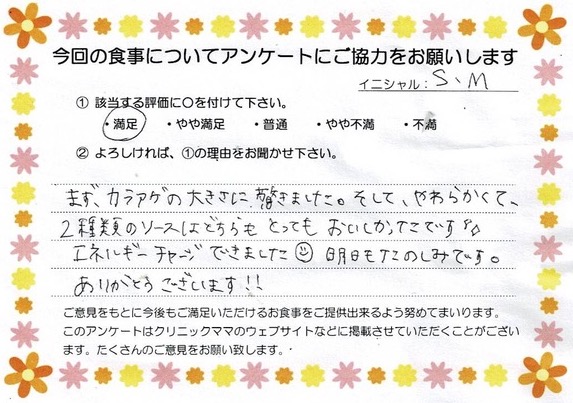 今回の食事についてアンケートにご協力をお願いします
イニシャル：S、M
① 該当する評価に〇を付けて下さい。
・満足 ・やや満足 ・普通 ・やや不満 ・不満
② よろしければ、①の理由をお聞かせ下さい。
まず、カラアゲの大きさに驚きました。そして、やわらかくて、
2種類のソースはどちらもとってもおいしかったです♪
エネルギーチャージできました☺ 明日もたのしみです。
ありがとうございます!!
ご意見をもとに今後もご満足いただけるお食事をご提供出来るよう努めてまいります。
このアンケートはクリニックママのウェブサイトなどに掲載させていただくことがござい
ます。たくさんのご意見をお願い致します。